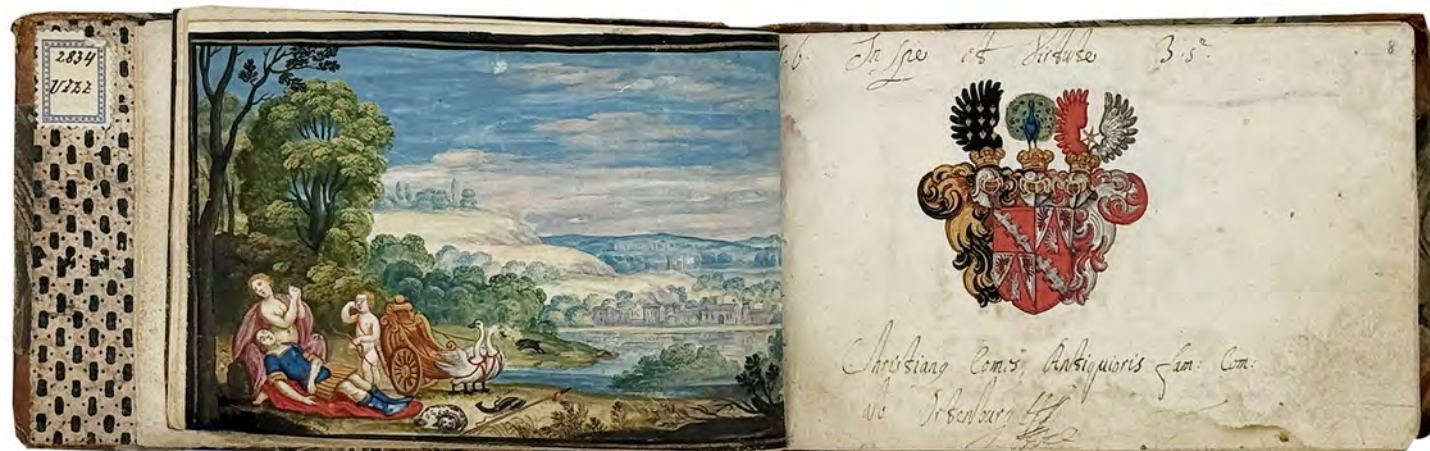 2834
In spe et virtute
8
Christianq Comes Antiquioris fam: Com:
ab Ortenburg